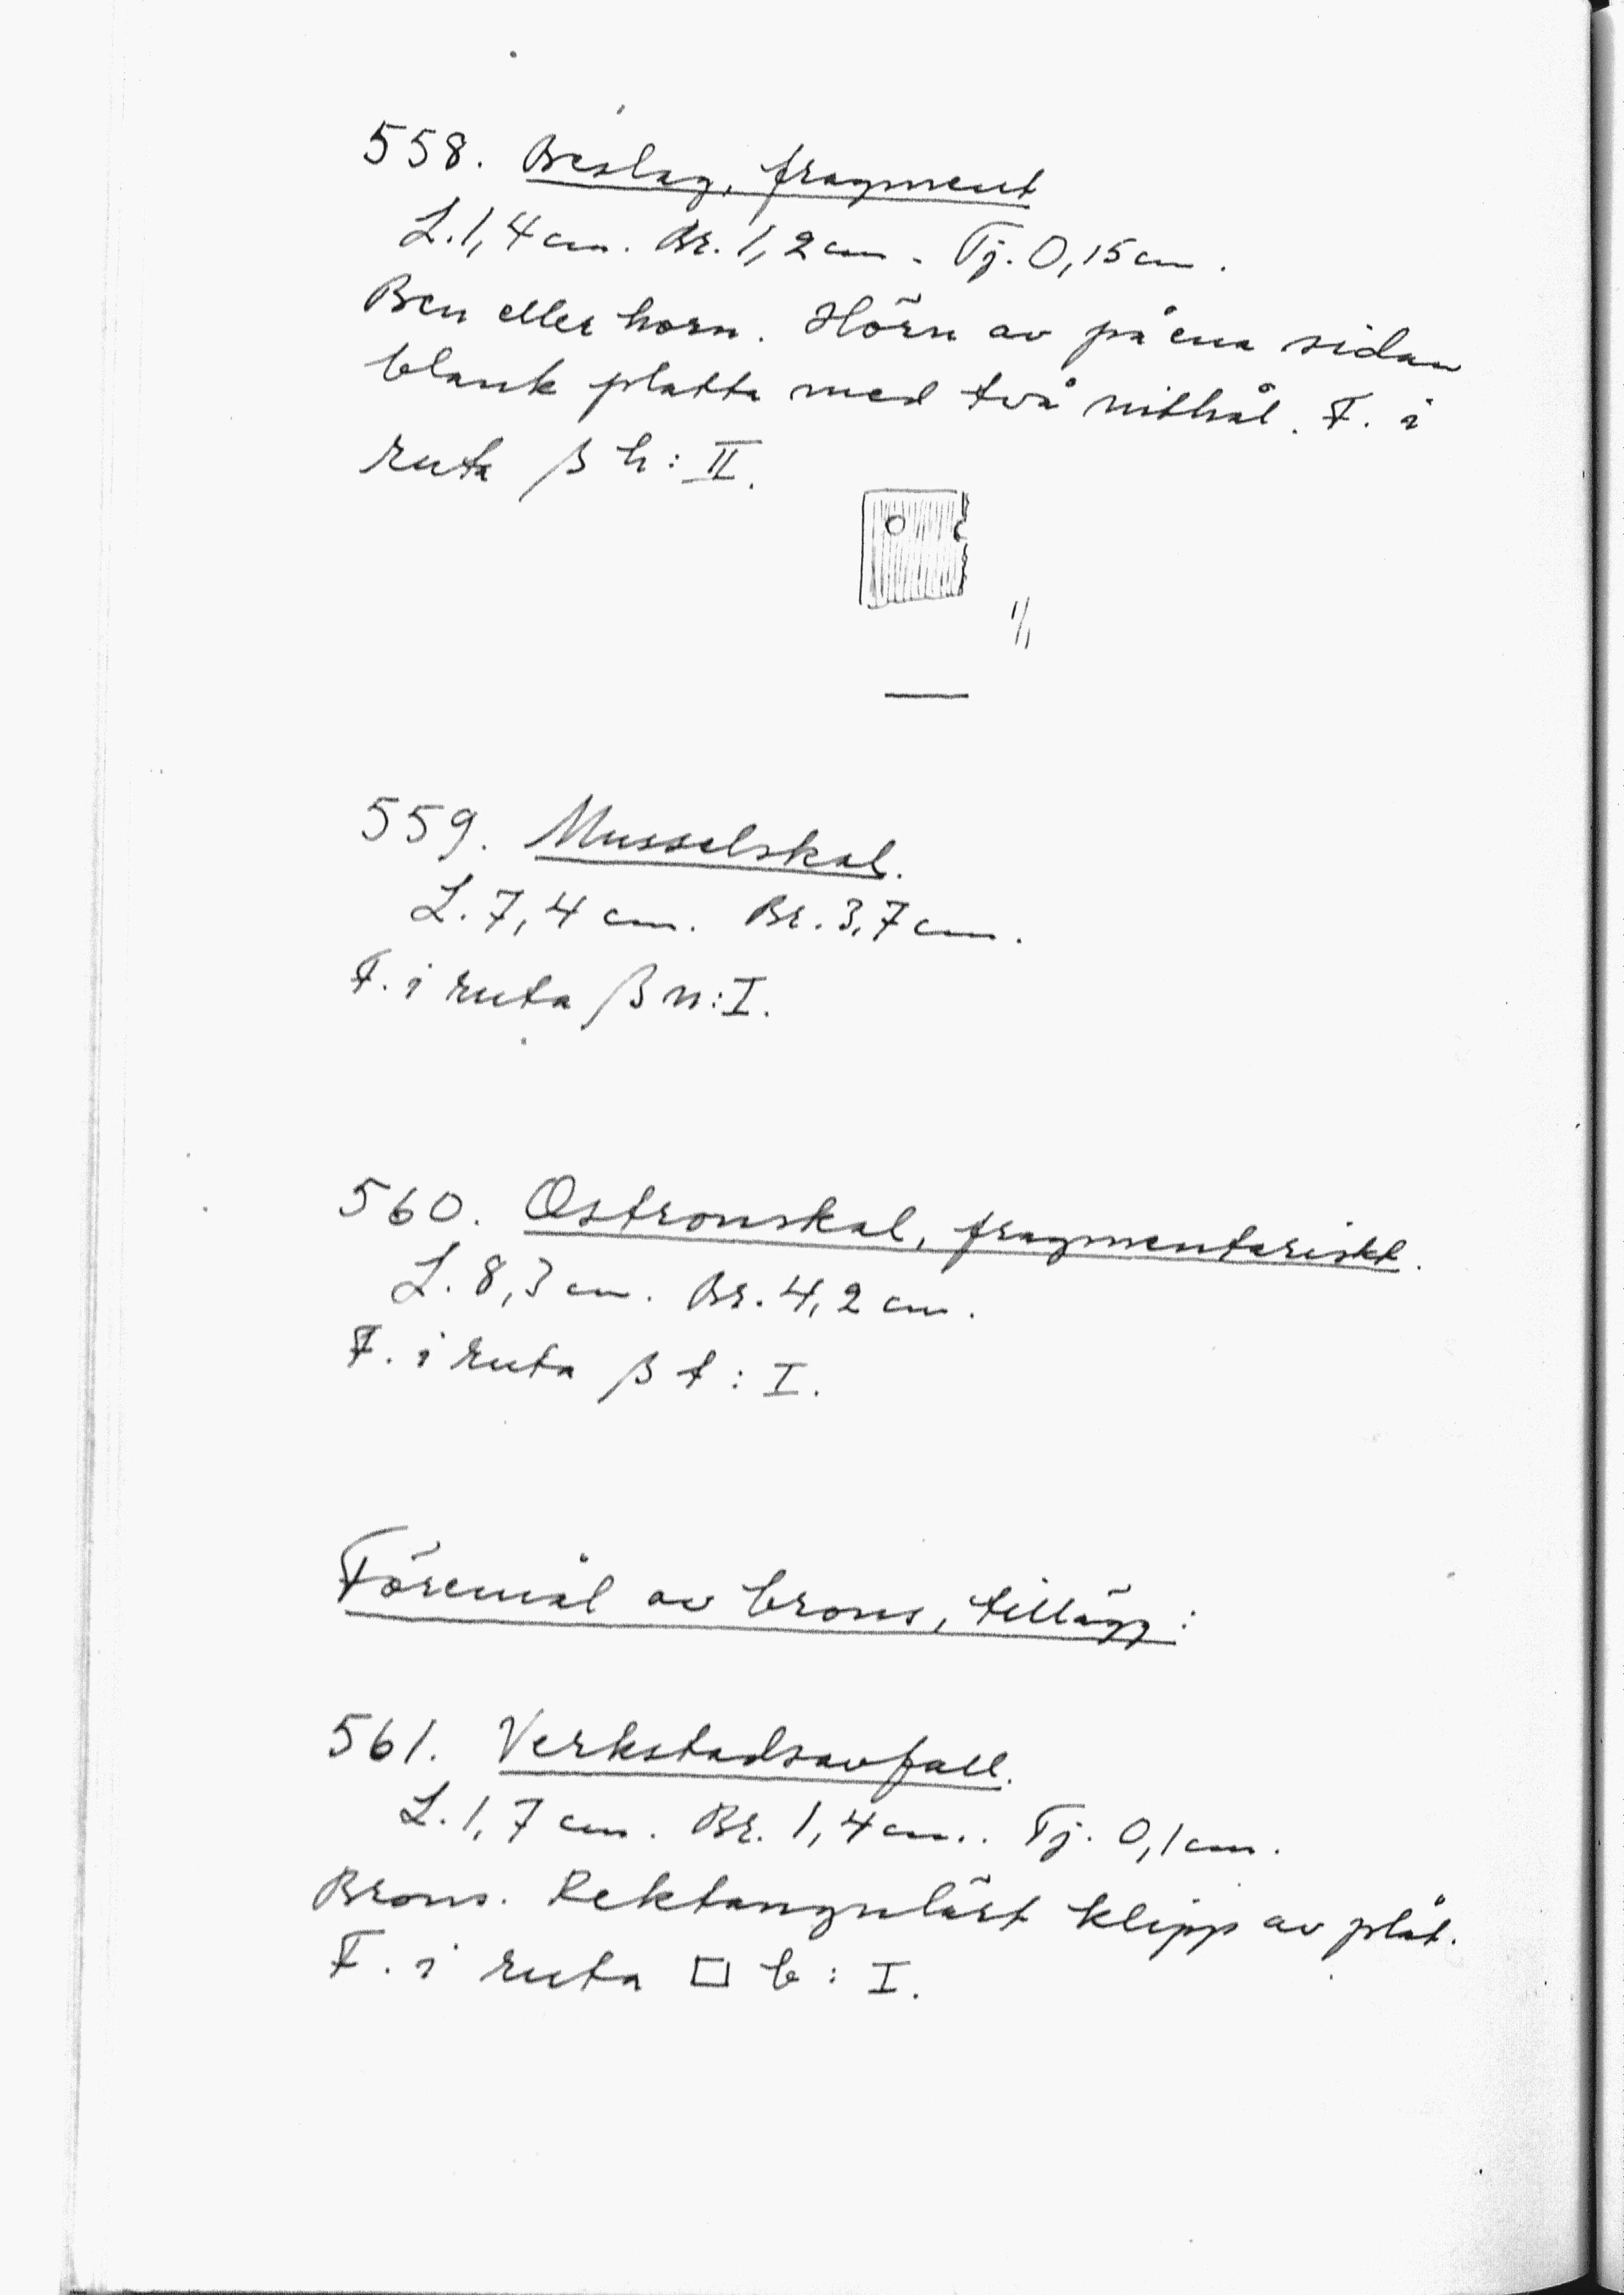 558. Beslag, fragment
L. 1,4 cm. Br. 1,2 cm. Tj. 0,15 cm.
Ben eller horn. Hörn av på ena sidan
blank platta med två nithål. F. i
ruta β h: II.
1/1
559. Musselskal.
L. 7,4 cm. Br. 3,7 cm.
F. i ruta β n: I.
560. Ostronskal, fragmentariskt.
L. 8,3 cm. Br. 4,2 cm.
F. i ruta β t: I.
Föremål av brons, tillägg:
561. Verkstadsavfall.
L. 1,7 cm. Br. 1,4 cm. Tj. 0,1 cm.
Brons. Rektangulärt klipp av plåt.
F. i ruta □ b: I.